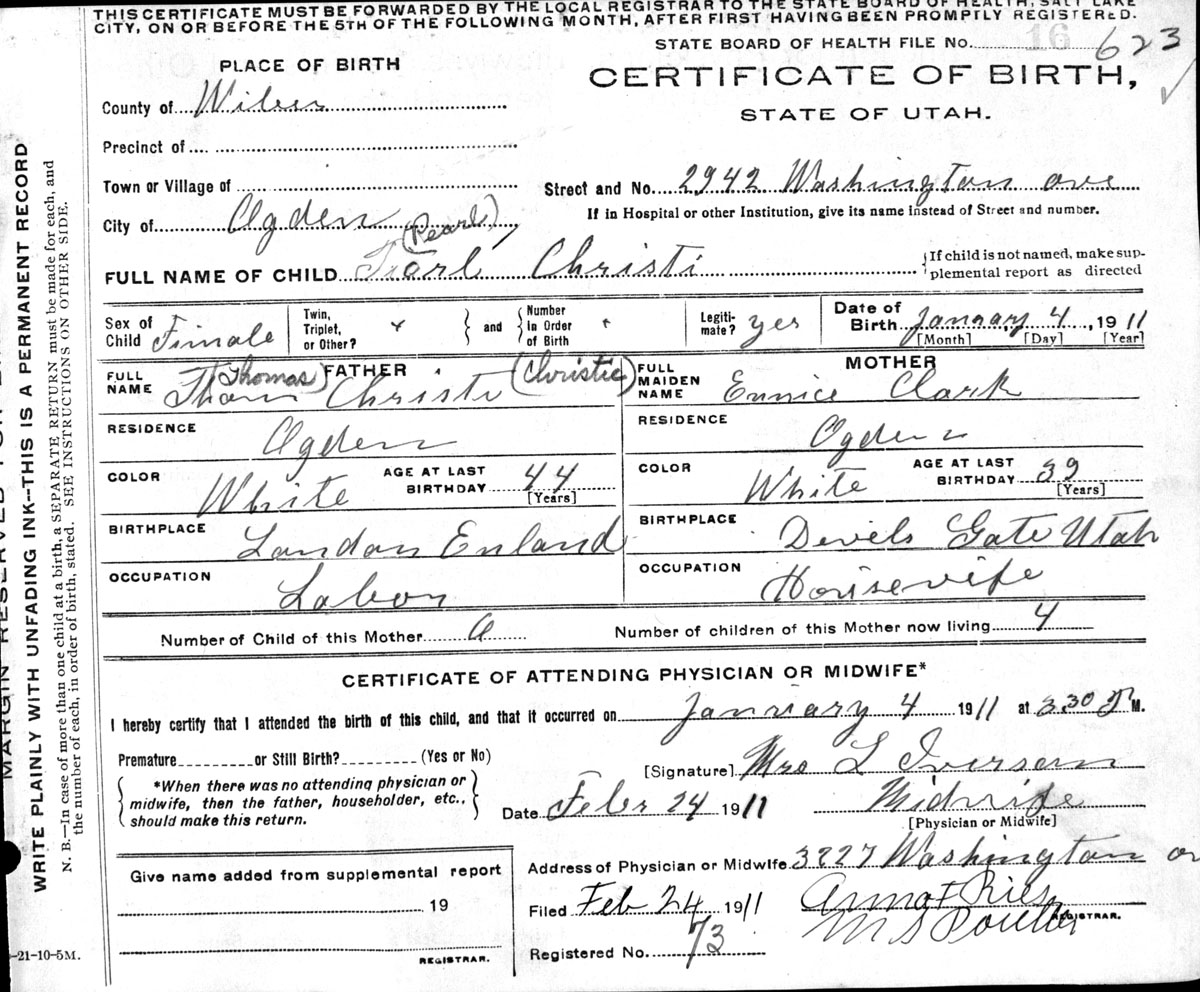 THIS CERTIFICATE MUST BE FORWARDED BY THE LOCAL REGISTRAR TO THE STATE BOARD OF HEALTH, SALT LAKE
CITY, ON OR BEFORE THE 5TH OF THE FOLLOWING MONTH, AFTER FIRST HAVING BEEN PROMPTLY REGISTERED.
STATE BOARD OF HEALTH FILE No. 16 623
PLACE OF BIRTH
CERTIFICATE OF BIRTH,
STATE OF UTAH.
County of
Precinct of
Town or Village of
Street and No. 2942 Washington ave
If in Hospital or other Institution, give its name instead of Street and number.
City of Ogden
(Pearl)
FULL NAME OF CHILD Christi
If child is not named, make sup-
plemental report as directed
Sex of Child Fimale
Twin, Triplet, or Other?
and
Number In Order of Birth
Legiti-mate? yes
Date of Birth January 4, 1911
[Month] [Day] [Year]
FATHER
FULL NAME (Thomas) Christi (Christie)
MOTHER
FULL MAIDEN NAME Eunice Clark
RESIDENCE Ogden
RESIDENCE Ogden
COLOR White
AGE AT LAST BIRTHDAY 44
[Years]
COLOR White
AGE AT LAST BIRTHDAY 39
[Years]
BIRTHPLACE London Enland
BIRTHPLACE Devils Gate Utah
OCCUPATION Labor
OCCUPATION Housewife
Number of Child of this Mother
Number of children of this Mother now living 4
CERTIFICATE OF ATTENDING PHYSICIAN OR MIDWIFE*
I hereby certify that I attended the birth of this child, and that it occurred on January 4 1911 at 3.30 P M.
Premature or Still Birth? (Yes or No)
[Signature] Mrs L Iversen
*When there was no attending physician or
midwife, then the father, householder, etc.,
should make this return.
Date Febr 24 1911
Midwife
[Physician or Midwife]
Give name added from supplemental report
19
REGISTRAR.
Address of Physician or Midwife 3227 Washington
Filed Feb 24 1911
REGISTRAR.
Registered No. 73
-21-10-5M.
MARGIN RESERVED FOR
WRITE PLAINLY WITH UNFADING INK--THIS IS A PERMANENT RECORD
N. B.—In case of more than one child at a birth, a SEPARATE RETURN must be made for each, and
the number of each, in order of birth, stated. SEE INSTRUCTIONS ON OTHER SIDE.